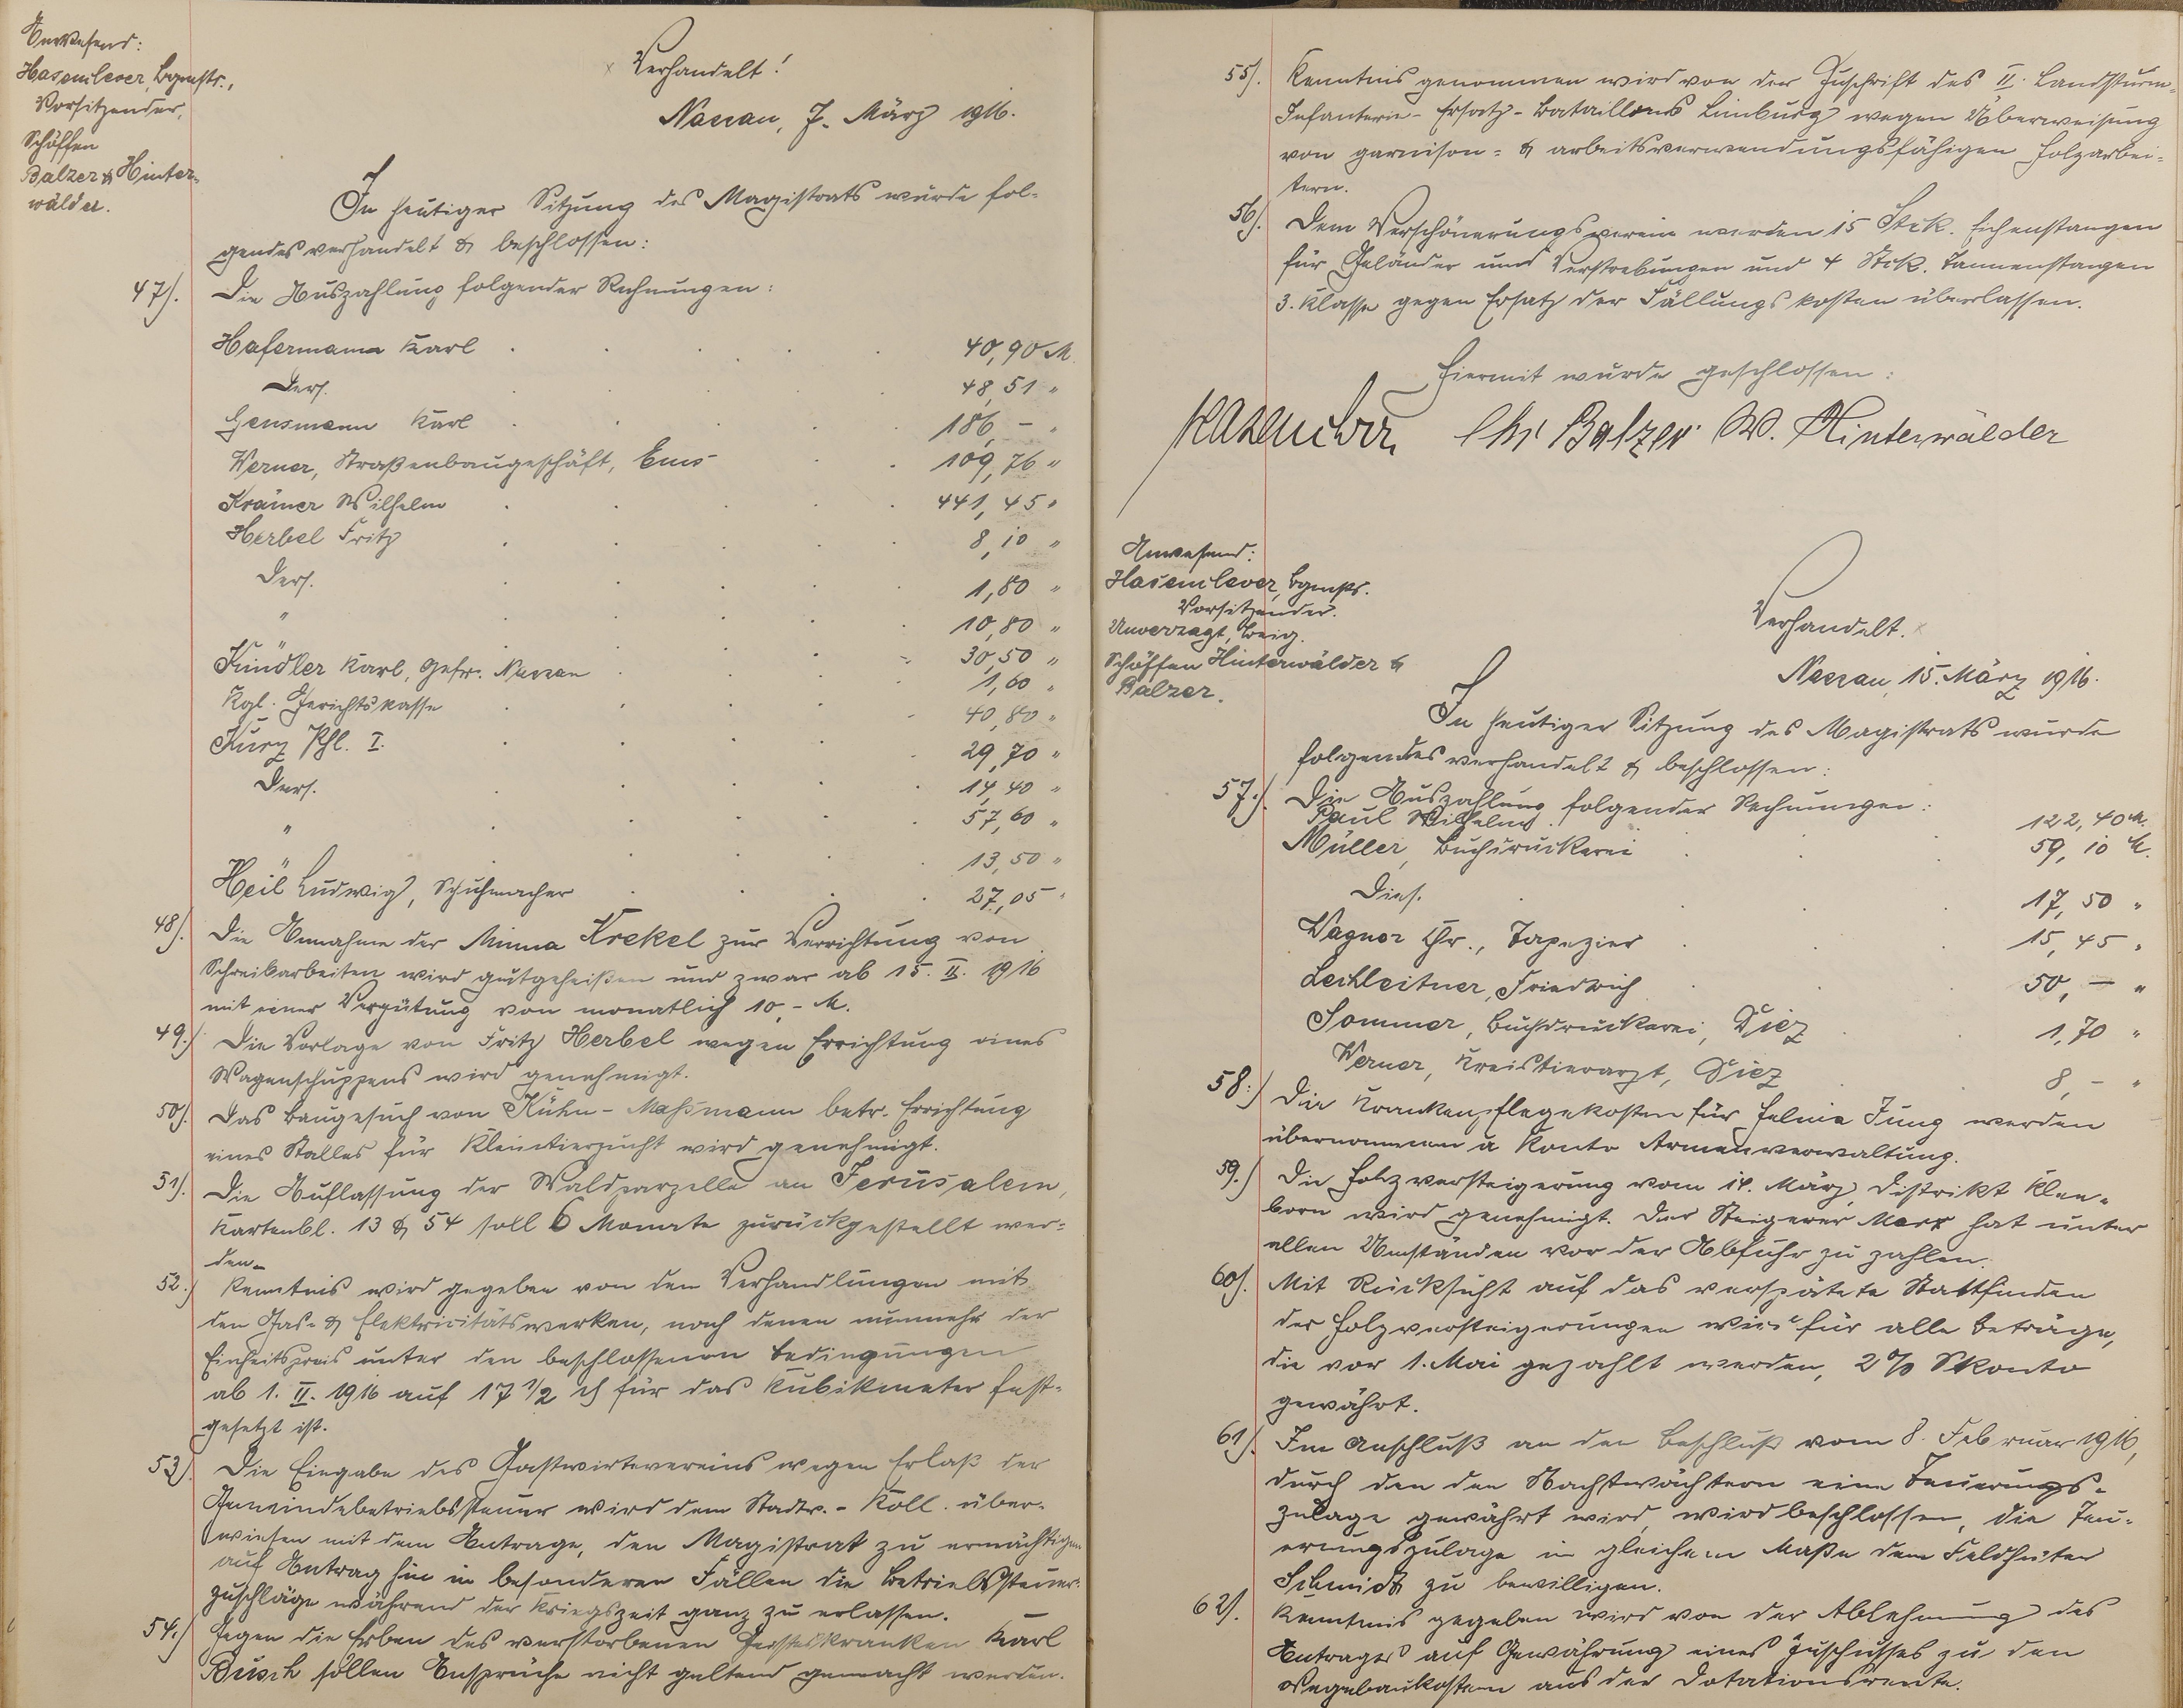 Anwesend:
Hasenclever, Bgmstr.,
Vorsitzender,
Schöffen
Balzer & Hinter-
wälder.
Verhandelt!
Nassau, 7. März 1916.
In heutiger Sitzung des Magistrats wurde fol-
gendes verhandelt & beschlossen:
47). Die Auszahlung folgender Rechnungen:
Hafermann Karl 40,90 M.
Ders. 48,51 "
Gensmann Karl 186,- "
Werner, Straßenbaugeschäft, Ems 109,76 "
Krämer Wilhelm 441,45 "
Herbel Fritz 8,10 "
Ders. 1,80 "
" 10,80 "
" 30,50 "
Kündler Karl, Gefr. Nassau 1,60 "
Kgl. Gerichtskasse 40,80 "
Kurz Phl. I. 29,70 "
Ders. 14,40 "
" 57,60 "
" 13,50 "
Heil Ludwig, Schuhmacher 27,05 "
48). Die Annahme der Minna Krekel zur Verrichtung von
Schreibarbeiten wird gutgeheißen und zwar ab 15. II. 1916
mit einer Vergütung von monatlich 10,- M.
49.) Die Vorlage von Fritz Herbel wegen Errichtung eines
Wagenschuppens wird genehmigt.
50). Das Baugesuch von Kühn-Massmann betr. Errichtung
eines Stalles für Kleintierzucht wird genehmigt.
51). Die Auflassung der Waldparzelle an Jerusalem,
Kartenbl. 13 & 54 soll 6 Monate zurückgestellt wer-
den.
52.) Kenntnis wird gegeben von den Verhandlungen mit
den Gas- & Elektricitätswerken, nach denen nunmehr der
Einheitspreis unter den beschlossenen Bedingungen
ab 1. II. 1916 auf 17 1/2 ₰ für das Kubikmeter fest-
gesetzt ist.
53). Die Eingabe des Gastwirtevereins wegen Erlaß der
Gemeindebetriebssteuer wird dem Stadtv.-Koll. über-
wiesen mit dem Antrage, den Magistrat zu ermächtigen
auf Antrag hin in besonderen Fällen die Betriebssteuer-
zuschläge während der Kriegszeit ganz zu erlassen.
54.) Gegen die Erben des verstorbenen Geisteskranken Karl
Busch sollen Ansprüche nicht geltend gemacht werden.
55). Kenntnis genommen wird von der Zuschrift des II. Landsturm-
Infanterie-Ersatz-Bataillons Limburg wegen Überweisung
von garnison- & arbeitsverwendungsfähigen Holzarbei-
tern.
56). Dem Verschönerungsverein werden 15 Stck. Eichenstangen
für Geländer und Verstrebungen und 4 Stck. Tannenstangen
3. Klasse gegen Ersatz der Fällungskosten überlassen.
Hiermit wurde geschlossen:
Hasenclever Chr Balzer W. Hinterwälder
Anwesend:
Hasenclever, Bgmstr.
Vorsitzender.
Unverzagt, Beig.
Schöffen Hinterwälder &
Balzer.
Verhandelt.
Nassau, 15. März 1916.
In heutiger Sitzung des Magistrats wurde
folgendes verhandelt & beschlossen:
57.). Die Auszahlung folgender Rechnungen:
Paul Wilhelm 122,40 M.
Müller, Buchdruckerei 59,10 M.
Dies. 17,50 "
Wagner Chr., Tapezier 15,45 "
Lechleitner, Friedrich 50,- "
Sommer, Buchdruckerei, Diez 1,70 "
Werner, Kreistierarzt, Diez 8,- "
58.) Die Krankenpflegekosten für Jung werden
übernommen a Konto Armenverwaltung.
59.) Die Holzversteigerung vom 14. März, Distrikt Klee-
born wird genehmigt. Der Steigerer Marx hat unter
allen Umständen vor der Abfuhr zu zahlen.
60). Mit Rücksicht auf das verspätete Stattfinden
der Holzversteigerungen wird für alle Beträge,
die vor 1. Mai gezahlt werden, 2% Skonto
gewährt.
61). Im Anschluß an den Beschluß vom 8. Februar 1916,
durch den den Nachtwächtern eine Teuerungs-
zulage gewährt wird, wird beschlossen, die Teu-
erungszulage in gleichem Maße dem Feldhüter
Schmidt zu bewilligen.
62). Kenntnis gegeben wird von der Ablehnung des
Antrages auf Gewährung eines Zuschusses zu den
Wegebaukosten aus der Dotationsrente.